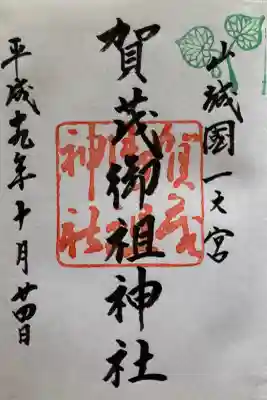 山城國一之宮
賀茂御祖神社
賀茂御祖神社
平成十九年十月廿四日